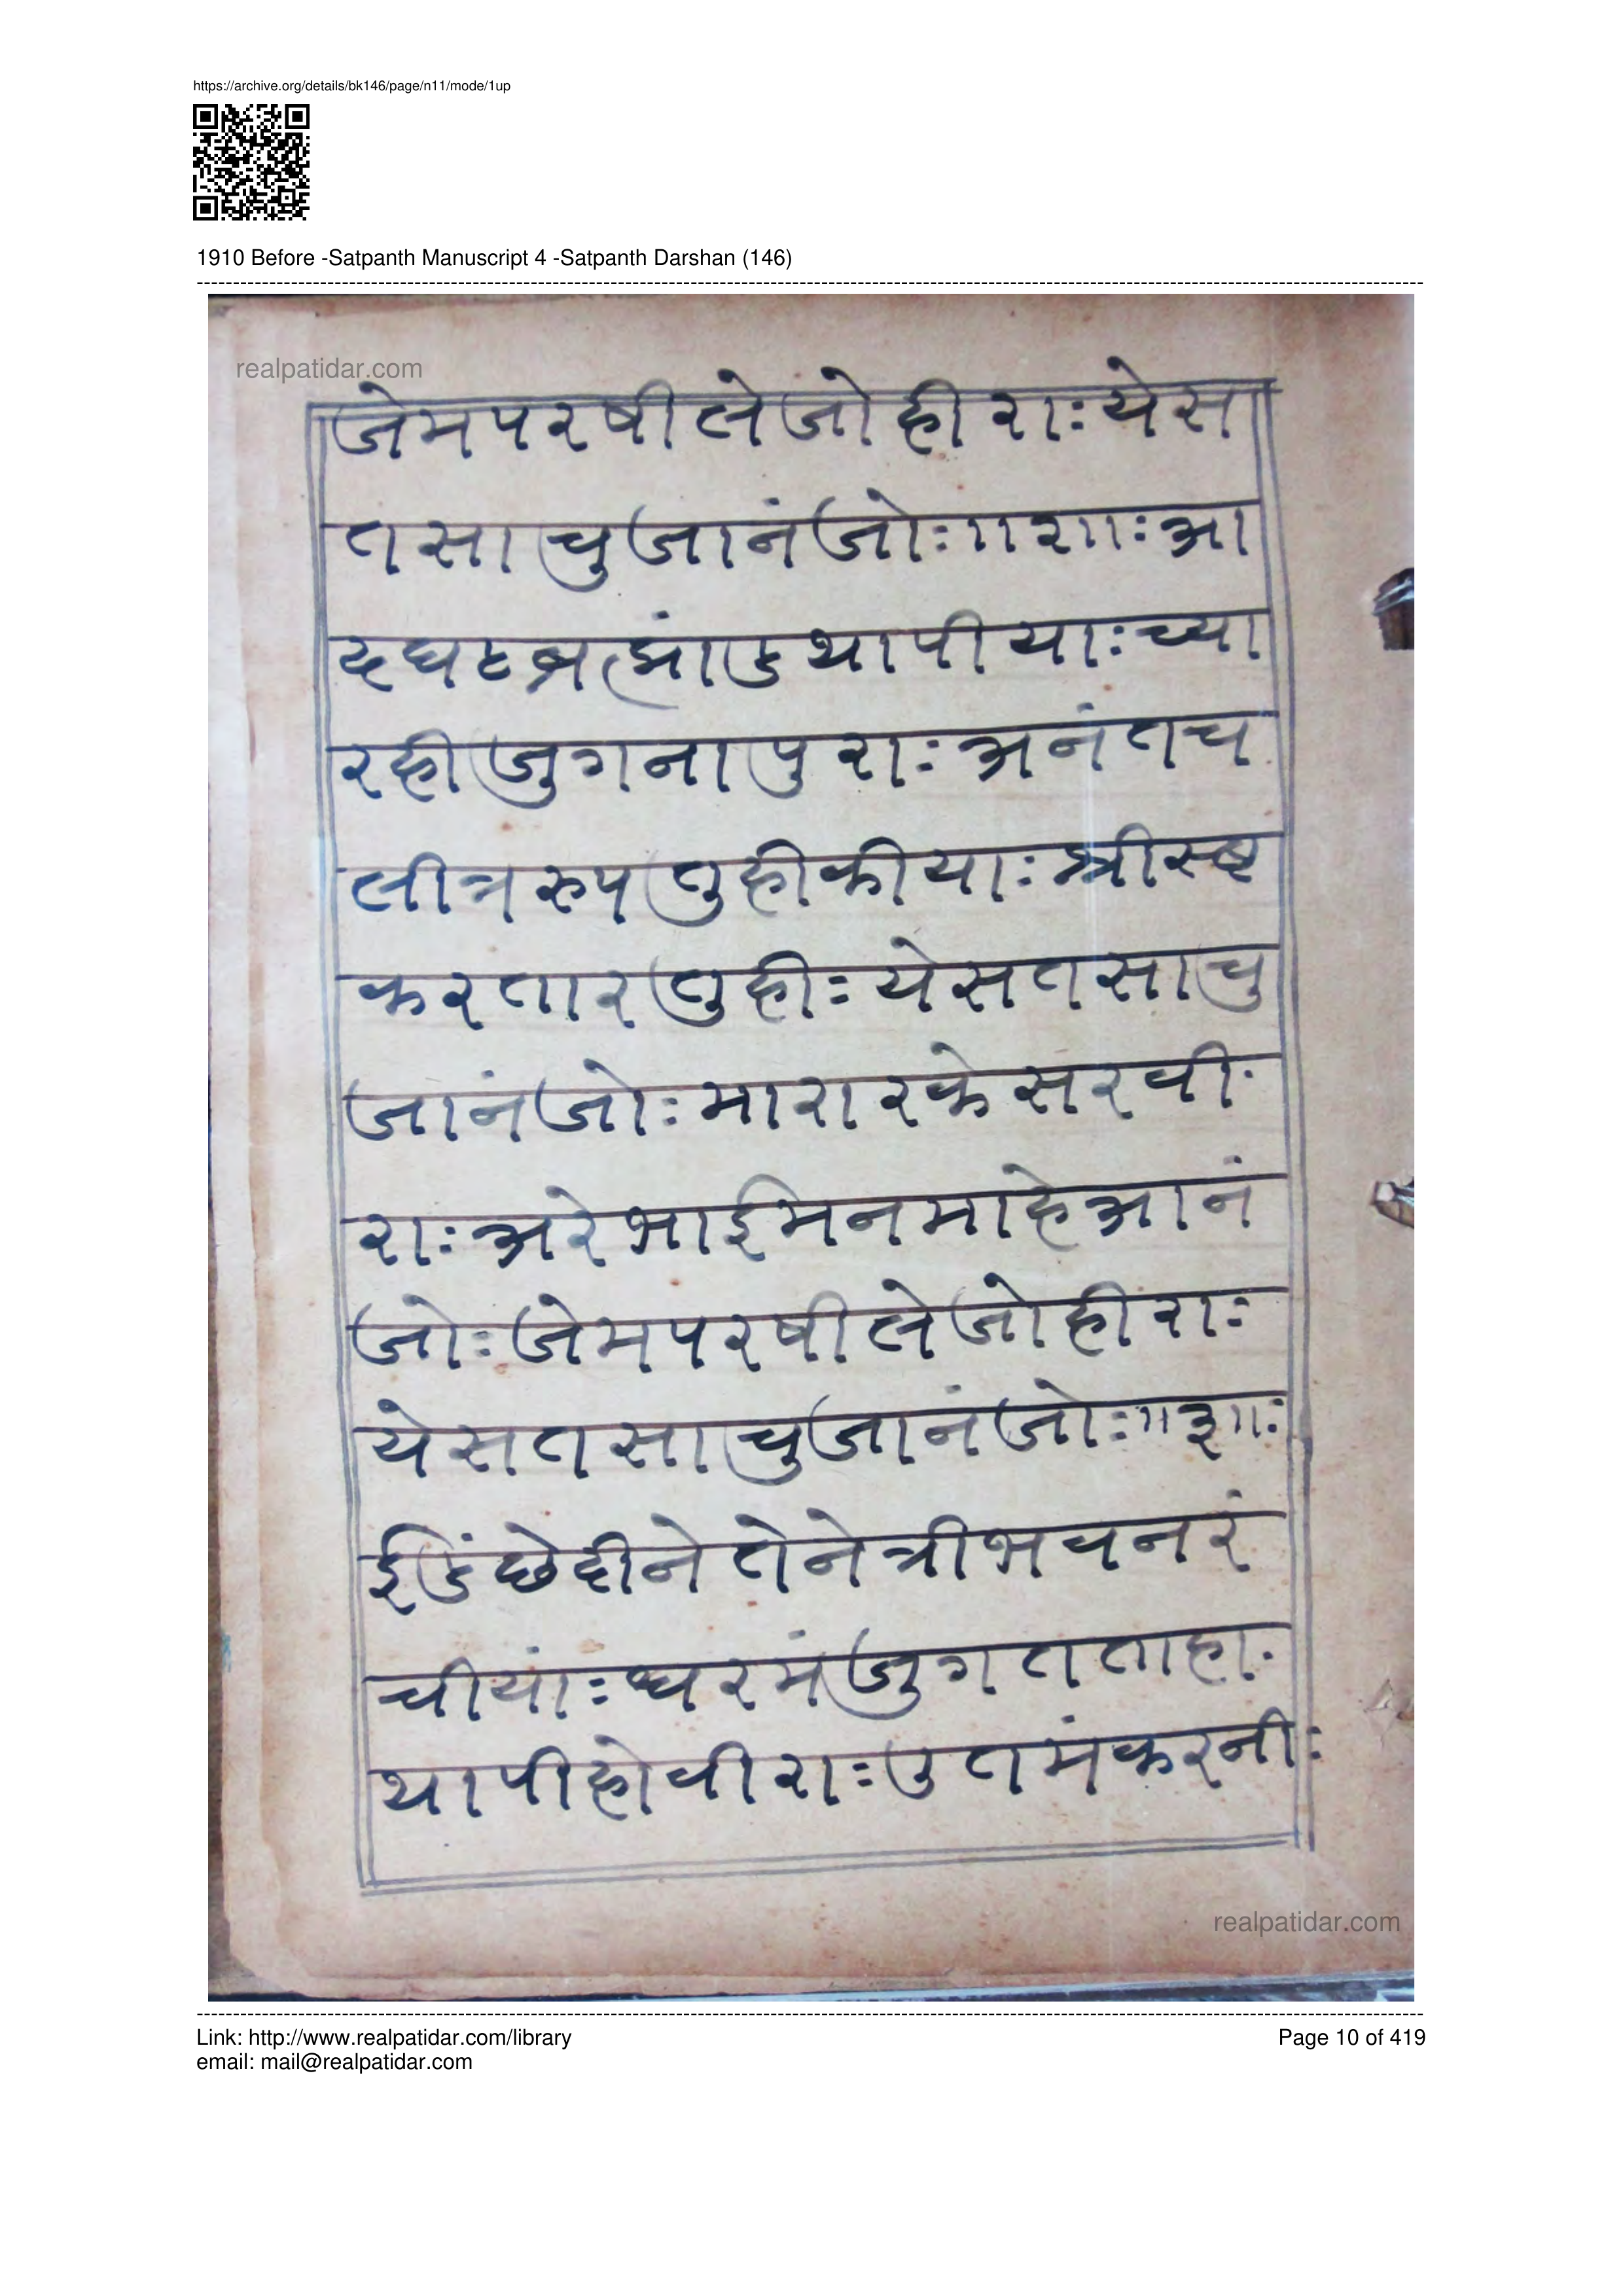 https://archive.org/details/bk146/page/n11/mode/1up
1910 Before -Satpanth Manuscript 4 -Satpanth Darshan (146)
realpatidar.com
जेमपरषीलेजोहीराःयेस
तसाचुजानंजोः॥२॥ःआ
दघटब्रह्मांडथापीयाःच्या
रहीजुगनापुराःअनंतच
लीत्ररुपतुहीकीयाःश्रीस्ष्ट
करतारतुहीःयेसतसाचु
जानंजोःमारारकेसरवी
राःअरेभाईमनमाहेआनं
जोःजेमपरषीलेजोहीराः
येसतसाचुजानंजोः॥३॥ः
ईडंछेदीनेतेनेत्रीभवनरं
चीयांःधरमंजुगतताहा
थापीहोवीराःउतमंकरनीः
realpatidar.com
Link: http://www.realpatidar.com/library
Page 10 of 419
email: mail@realpatidar.com